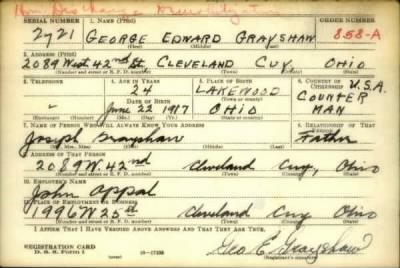 Hon. Discharge
SERIAL NUMBER 1. NAME (Print) ORDER NUMBER
2721 GEORGE EDWARD GRAYSHAW 858-A
(First) (Middle) (Last)
2. ADDRESS (Print)
2089 West 42nd St. CLEVELAND CUY. OHIO
(Number and street or R. F. D. number) (Town) (County) (State)
3. TELEPHONE 4. AGE IN YEARS 5. PLACE OF BIRTH 6. COUNTRY OF CITIZENSHIP
24 LAKEWOOD U.S.A.
DATE OF BIRTH (Town or county) COUNTER
June 22 1917 OHIO MAN
(Exchange) (No.) (Mo.) (Day) (Yr.) (State or country)
7. NAME OF PERSON WHO WILL ALWAYS KNOW YOUR ADDRESS 8. RELATIONSHIP OF THAT PERSON
Joseph Grayshaw Father
(Mr., Mrs., Miss) (First) (Middle) (Last)
9. ADDRESS OF THAT PERSON
2089 W. 42nd Cleveland Cuy. Ohio
(Number and street or R. F. D. number) (Town) (County) (State)
10. EMPLOYER'S NAME
John Oppal
11. PLACE OF EMPLOYMENT OR BUSINESS
1996 W 25th Cleveland Cuy Ohio
(Number and street or R. F. D. number) (Town) (County) (State)
I AFFIRM THAT I HAVE VERIFIED ABOVE ANSWERS AND THAT THEY ARE TRUE.
REGISTRATION CARD
D. S. S. Form 1 16-17105 Geo E. Grayshaw
(Registrant's signature)